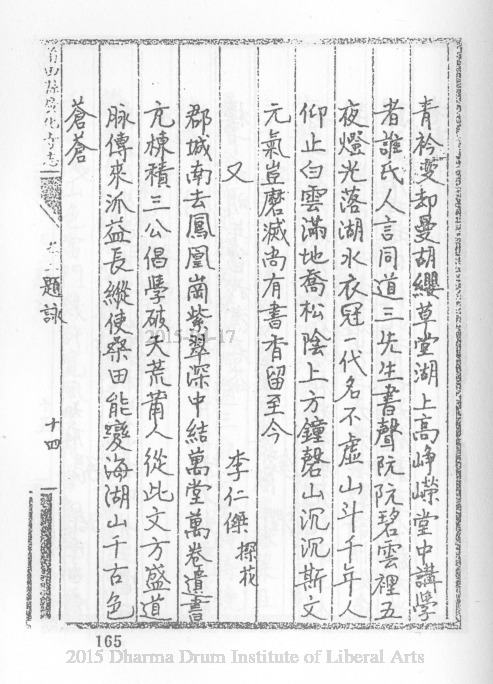 青衿变却曼胡纓草堂湖上高崢嶸堂中講學
者誰氏人言同道三先生書聲阮阮碧雲裡五
夜燈光落湖水衣冠一代名不虛山斗千年人
仰止白雲滿地喬松陰上方鐘磬山沉沉斯文
元氣豈磨滅尚有書香留至今
又 李仁傑 探花
郡城南去鳳凰崗紫翠深中結萬堂萬卷遺書
亢棟積三公倡學破天荒莆人從此文方盛道
脉傳來泒益長縱使桑田能變海湖山千古色
蒼蒼
莆田縣廣化寺志
題詠
十四
2015 17
165
2015 Dharma Drum Institute of Liberal Arts